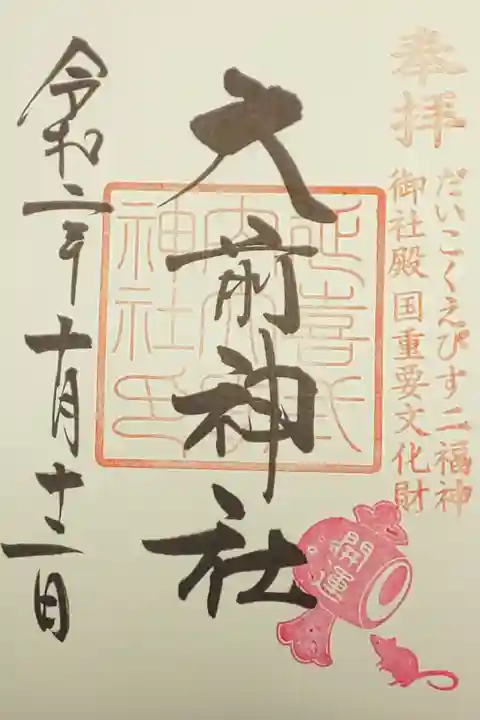 奉拝
だいこくえびす二福神
御社殿国重要文化財
大前神社
延喜式
内大前
神社印
開運
令和二年十月十一日